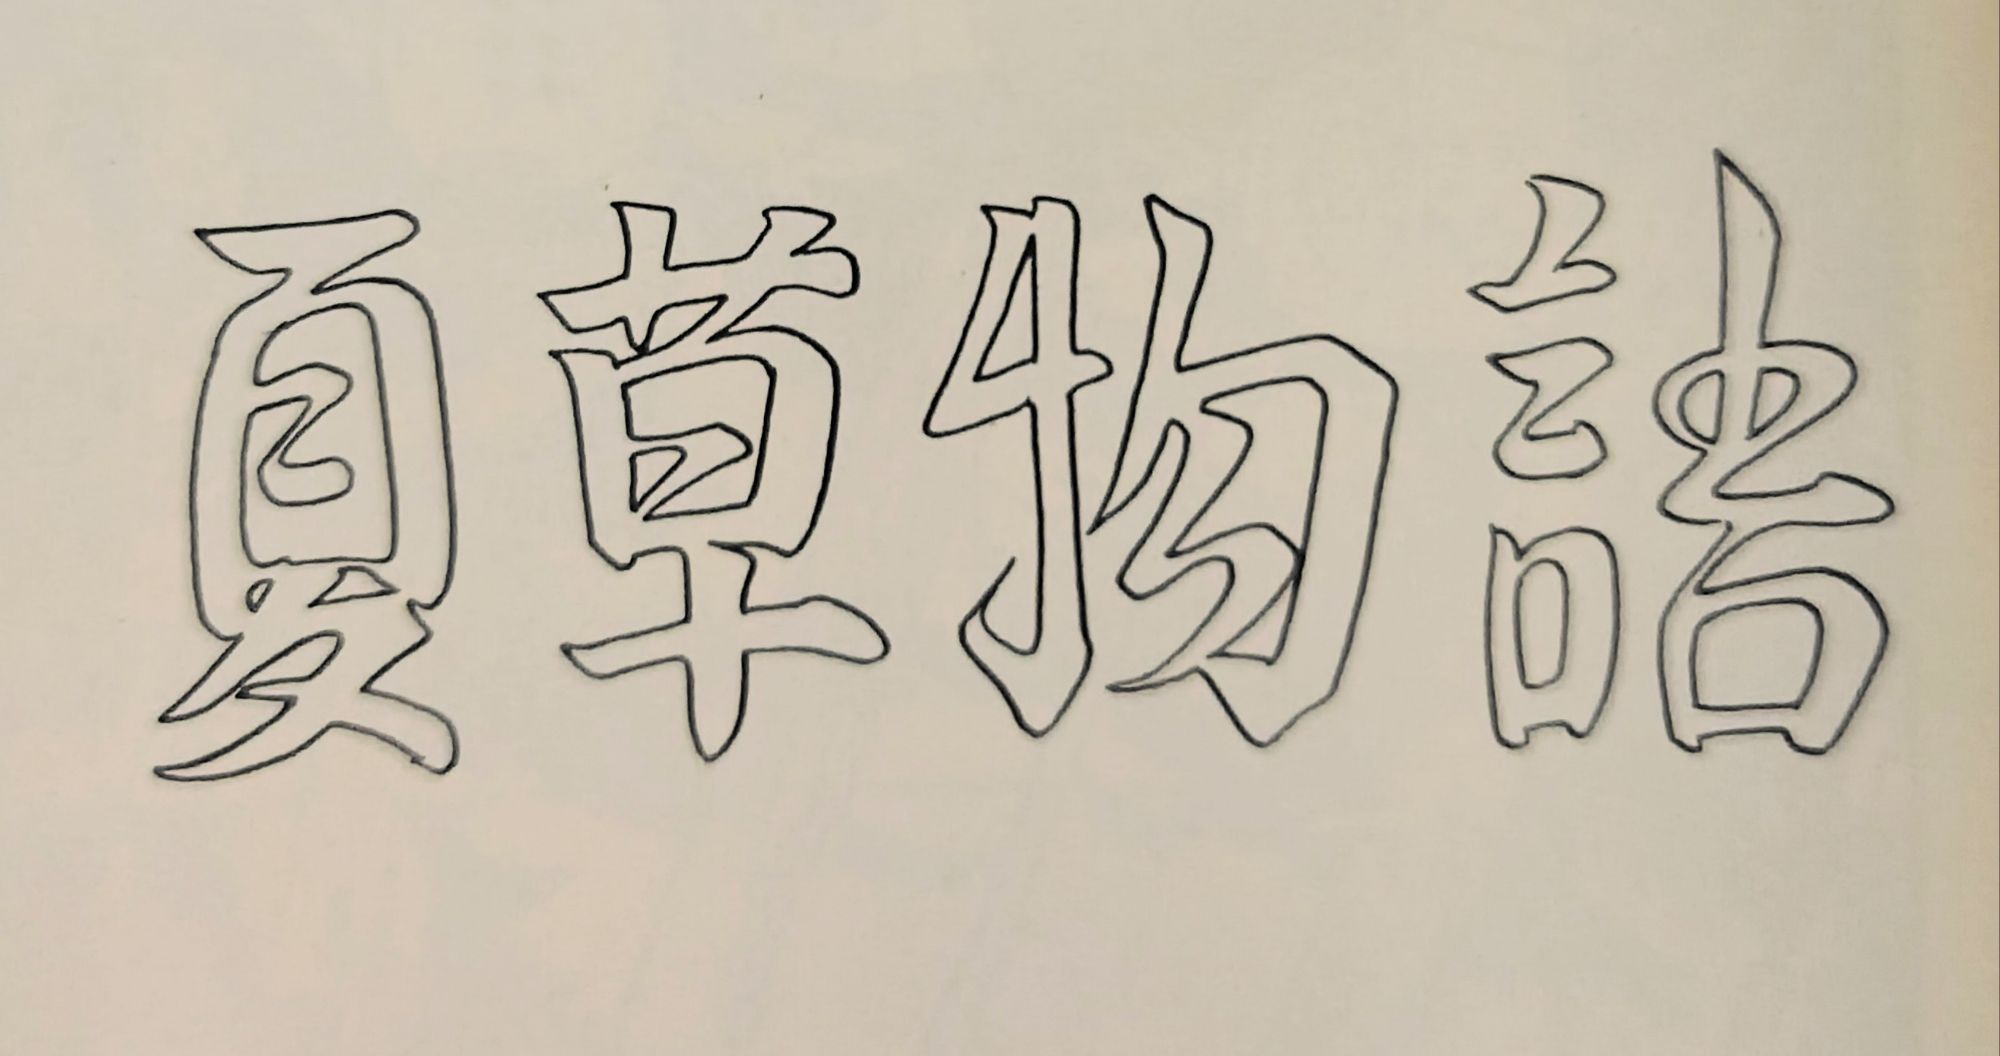 夏草物語